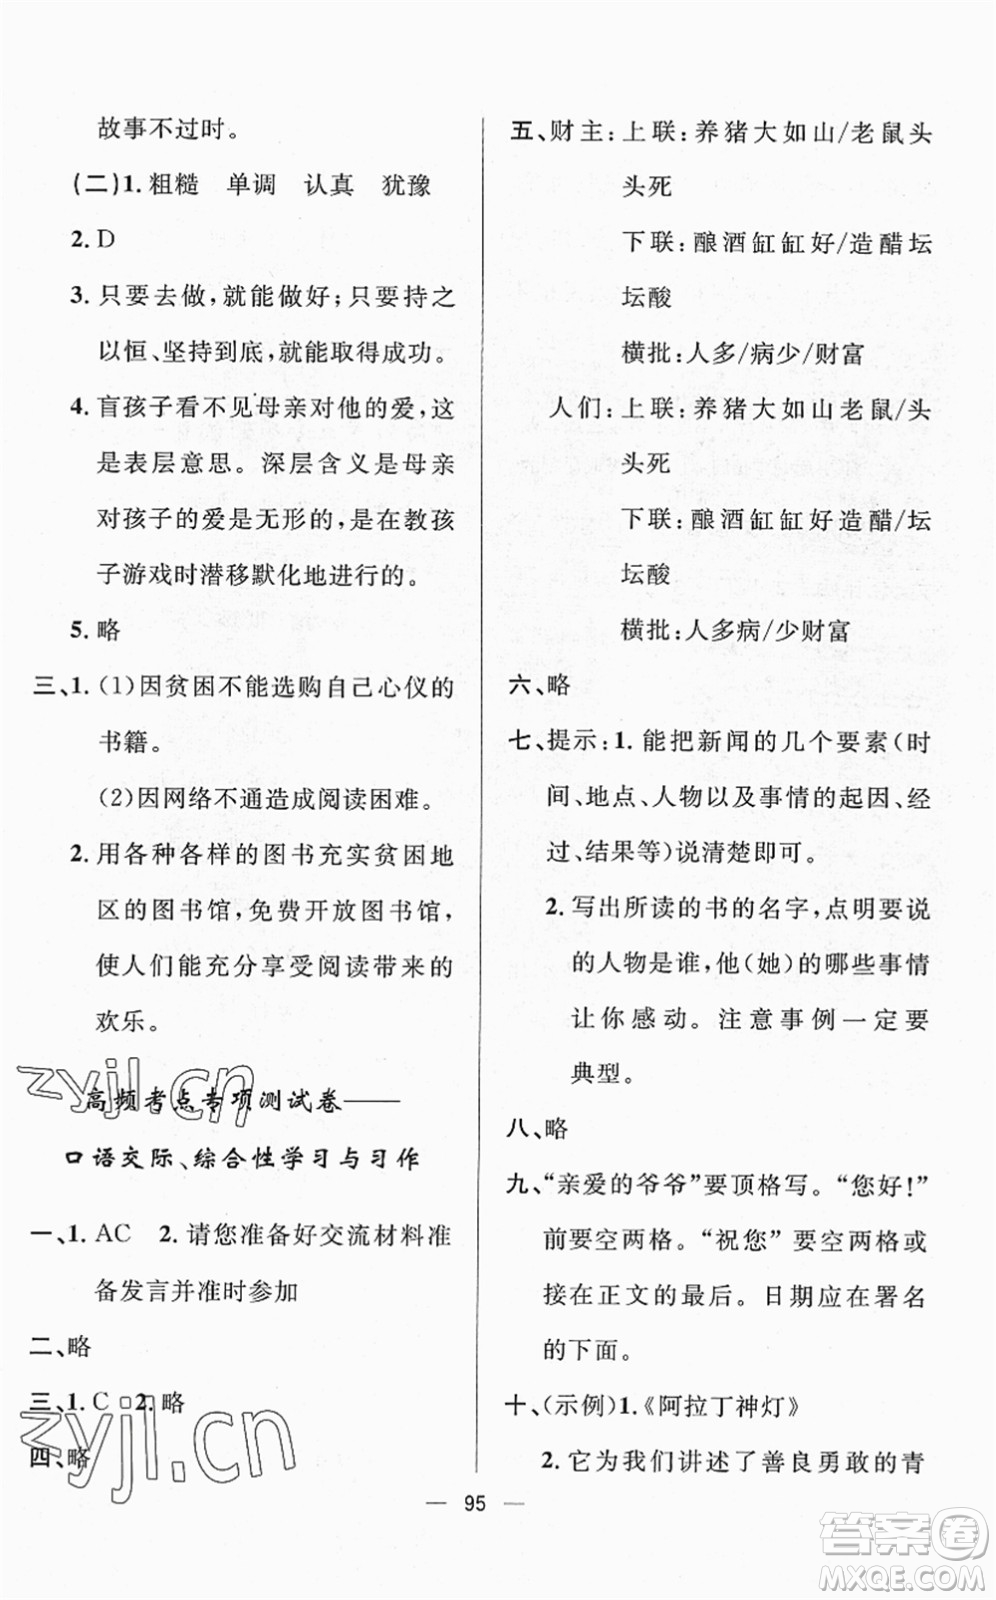 故事不过时。
(二)1.粗糙 单调 认真 犹豫
2.D
3.只要去做,就能做好;只要持之
以恒、坚持到底,就能取得成功。
4.盲孩子看不见母亲对他的爱,这
是表层意思。深层含义是母亲
对孩子的爱是无形的,是在教孩
子游戏时潜移默化地进行的。
5.略
三、1.(1)因贫困不能选购自己心仪的
书籍。
(2)因网络不通造成阅读困难。
2.用各种各样的图书充实贫困地
区的图书馆,免费开放图书馆,
使人们能充分享受阅读带来的
欢乐。
高频考点专项测试卷——
口语交际、综合性学习与习作
一、1.AC 2.请您准备好交流材料准
备发言并准时参加
二、略
三、1.C 2.略
四、略
五、财主:上联:养猪大如山/老鼠头
头死
下联:酿酒缸缸好/造醋坛
坛酸
横批:人多/病少/财富
人们:上联:养猪大如山老鼠/头
头死
下联:酿酒缸缸好造醋/坛
坛酸
横批:人多病/少财富
六、略
七、提示:1.能把新闻的几个要素(时
间、地点、人物以及事情的起因、经
过、结果等)说清楚即可。
2.写出所读的书的名字,点明要说
的人物是谁,他(她)的哪些事情
让你感动。注意事例一定要
典型。
八、略
九、“亲爱的爷爷”要顶格写。“您好!”
前要空两格。“祝您”要空两格或
接在正文的最后。日期应在署名
的下面。
十、(示例)1.《阿拉丁神灯》
2.它为我们讲述了善良勇敢的青
— 95 —
zyjl.cn
zyjl.cn
答案圈
MXQE.COM